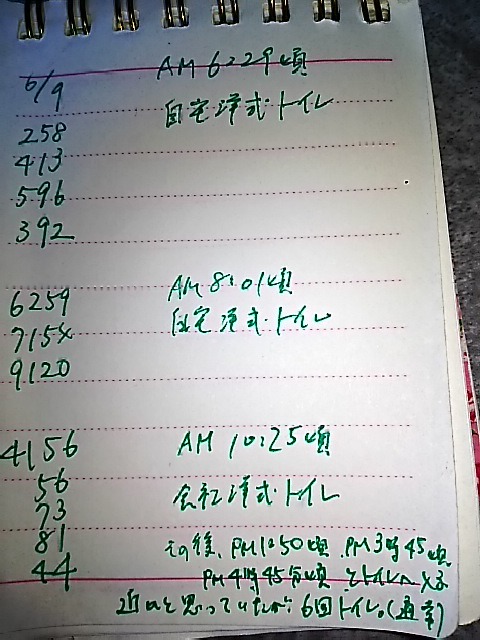 6/9 AM 6:29頃
自宅洋式トイレ
258
413
596
392
6259 AM 8:01頃
715× 自宅洋式トイレ
9120
4156 AM 10:25頃
56 会社洋式トイレ
73
81 その後、PM1:50頃 PM3時45頃
44 PM4時45分頃 とトイレへ
近いと思っていたが 6回トイレ。(通常)